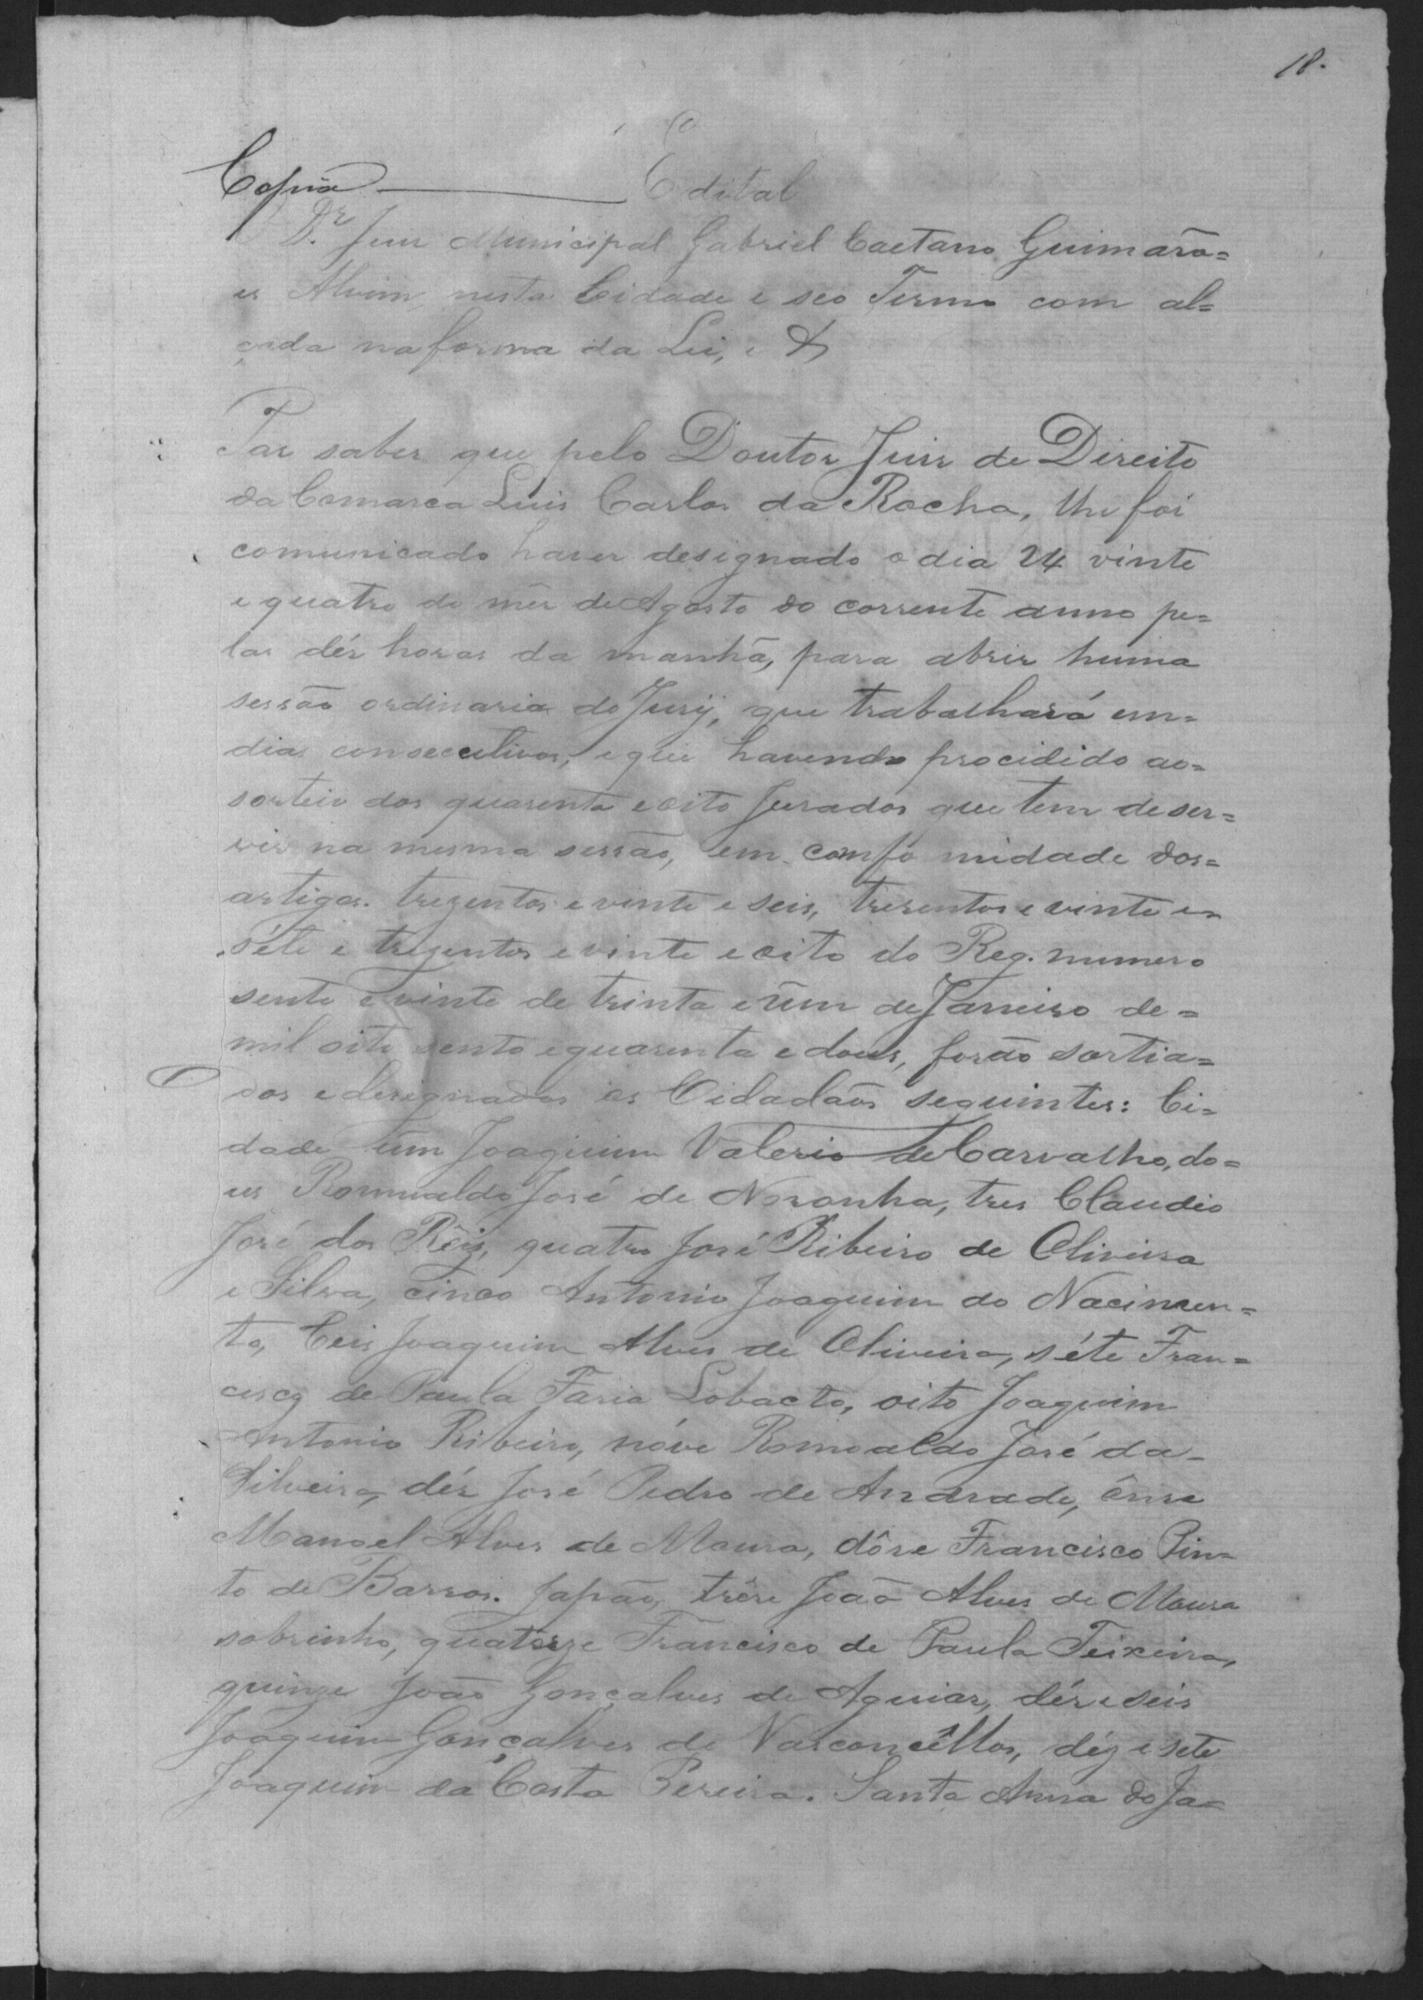 18.
Copia Edital
O Dr. Juiz Municipal Gabriel Caetano Guimarã=
es Alvim nesta Cidade e seo Termo com al=
çada na forma da Lei, e &
Faz saber que pelo Doutor Juiz de Direito
da Comarca Luis Carlos da Rocha, lhe foi
comunicado haver designado o dia 24 vinte
e quatro do mêz de Agosto do corrente anno pe=
las déz horas da manhã, para abrir huma
sessão ordinaria do Jury, que trabalhará em=
dias consecutivos, e que havendo procidido ao=
sorteio dos quarenta e oito Jurados que tem de ser=
vir na mesma sessão, em confo midade dos=
artigos trezentos e vinte e seis, trezentos e vinte e=
séte e trezentos e vinte e oito do Reg. numero
sento e vinte de trinta e um de Janeiro de=
mil oito sento e quarenta e dous, forão sortia=
dos e designados os Cidadãos seguintes: Ci=
dade um Joaquim Valerio de Carvalho, do=
us Romualdo José de Noronha, tres Claudio
José dos Rêis, quatro José Ribeiro de Oliveira
e Silva, cinco Antonio Joaquim do Nacimen=
to, Ceis Joaquim Alves de Oliveira, séte Fran=
cisco de Paula Faria Lobacto, oito Joaquim
Antonio Ribeiro, nóve Romoaldo José da=
Silveira, déz José Pedro de Andrade, ônze
Manoel Alves de Moura, dôze Francisco Pin=
to de Barros. Japão, trêze João Alves de Moura
sobrinho, quatorze Francisco de Paula Teixeira,
quinze João Gonçalves de Aguiar, déz e seis
Joaquim Gonçalves de Vasconcêllos, déz e sete
Joaquim da Costa Pereira. Santa Anna do Ja=